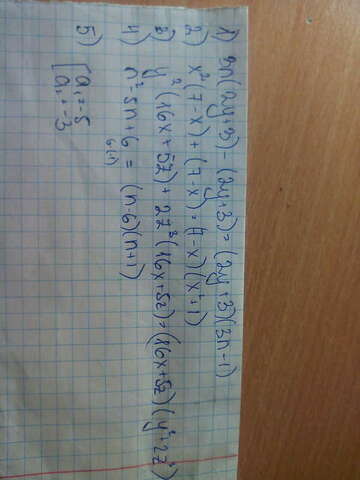 1) 3n(2y+3)-(2y+3)=(2y+3)(3n-1)
2) x²(7-x)+(7-x)=(7-x)(x²+1)
3) y²(16x+5z)+2z³(16x+5z)=(16x+5z)(y²+2z³)
4) n²-5n+6=(n-6)(n+1)
6(-1)
5) [a₁=-5
a₂=-3